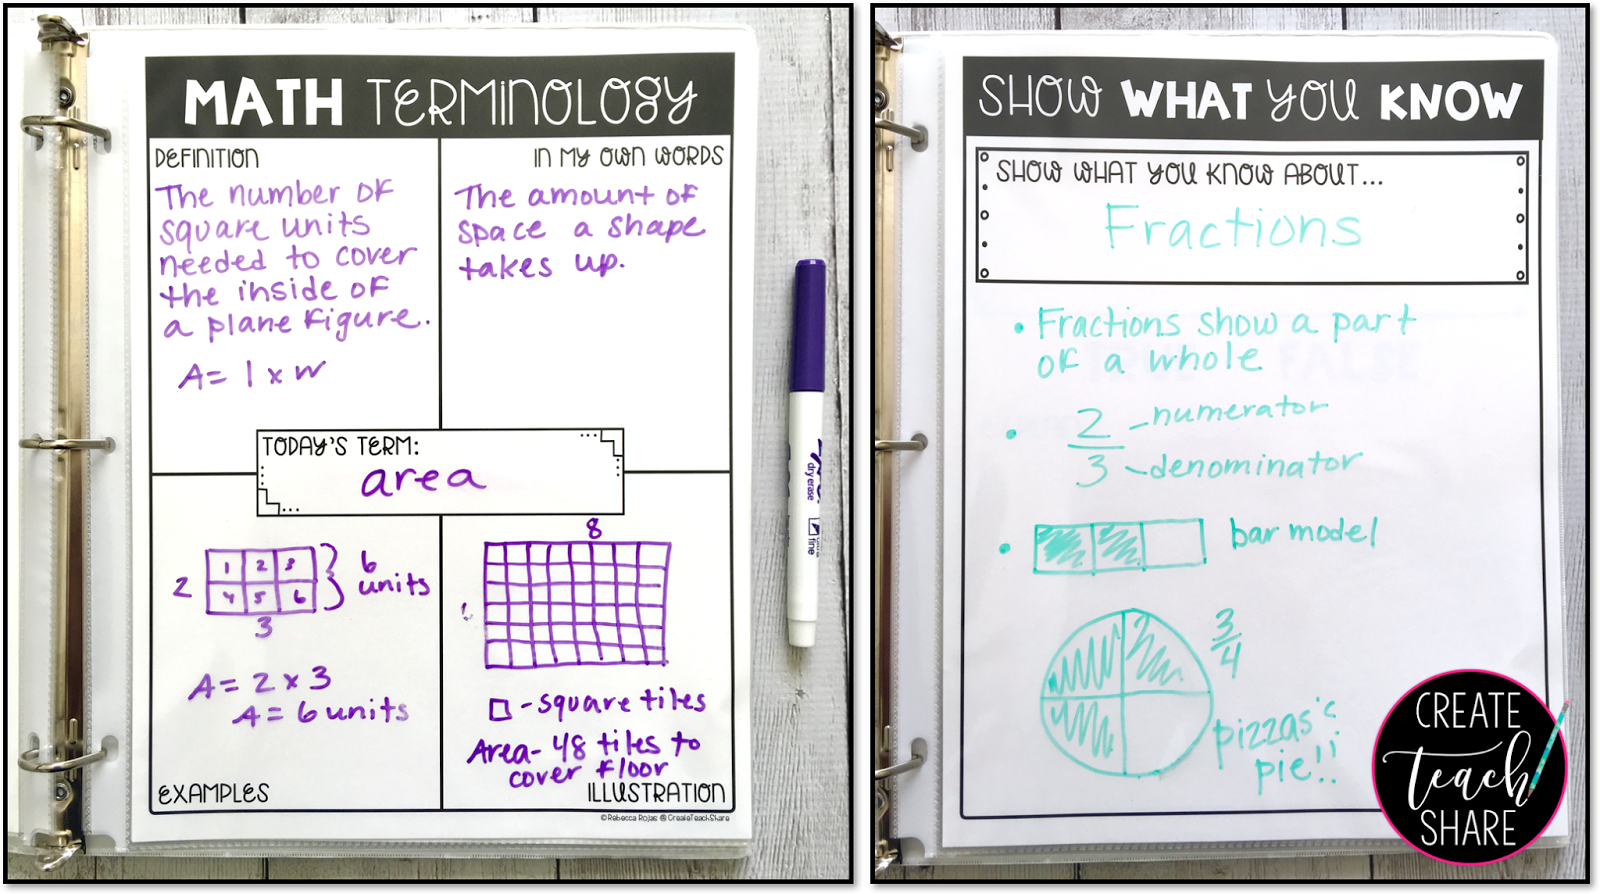 MATH TERMINOLOGY
DEFINITION
The number of
square units
needed to cover
the inside of
a plane figure.
A = l x w
IN MY OWN WORDS
The amount of
space a shape
takes up.
TODAY'S TERM:
area
2
1 2 3
4 5 6
3
6
units
A = 2 x 3
A = 6 units
EXAMPLES
8
- square tiles
Area - 48 tiles to
cover floor
ILLUSTRATION
©Rebecca Rojas @CreateTeachShare
dry erase
fine
SHOW WHAT YOU KNOW
SHOW WHAT YOU KNOW ABOUT...
Fractions
• Fractions show a part
of a whole
• 2 - numerator
3 - denominator
• bar model
3
4
pizzas
pie!!
TRUE FALSE
CREATE
teach
SHARE